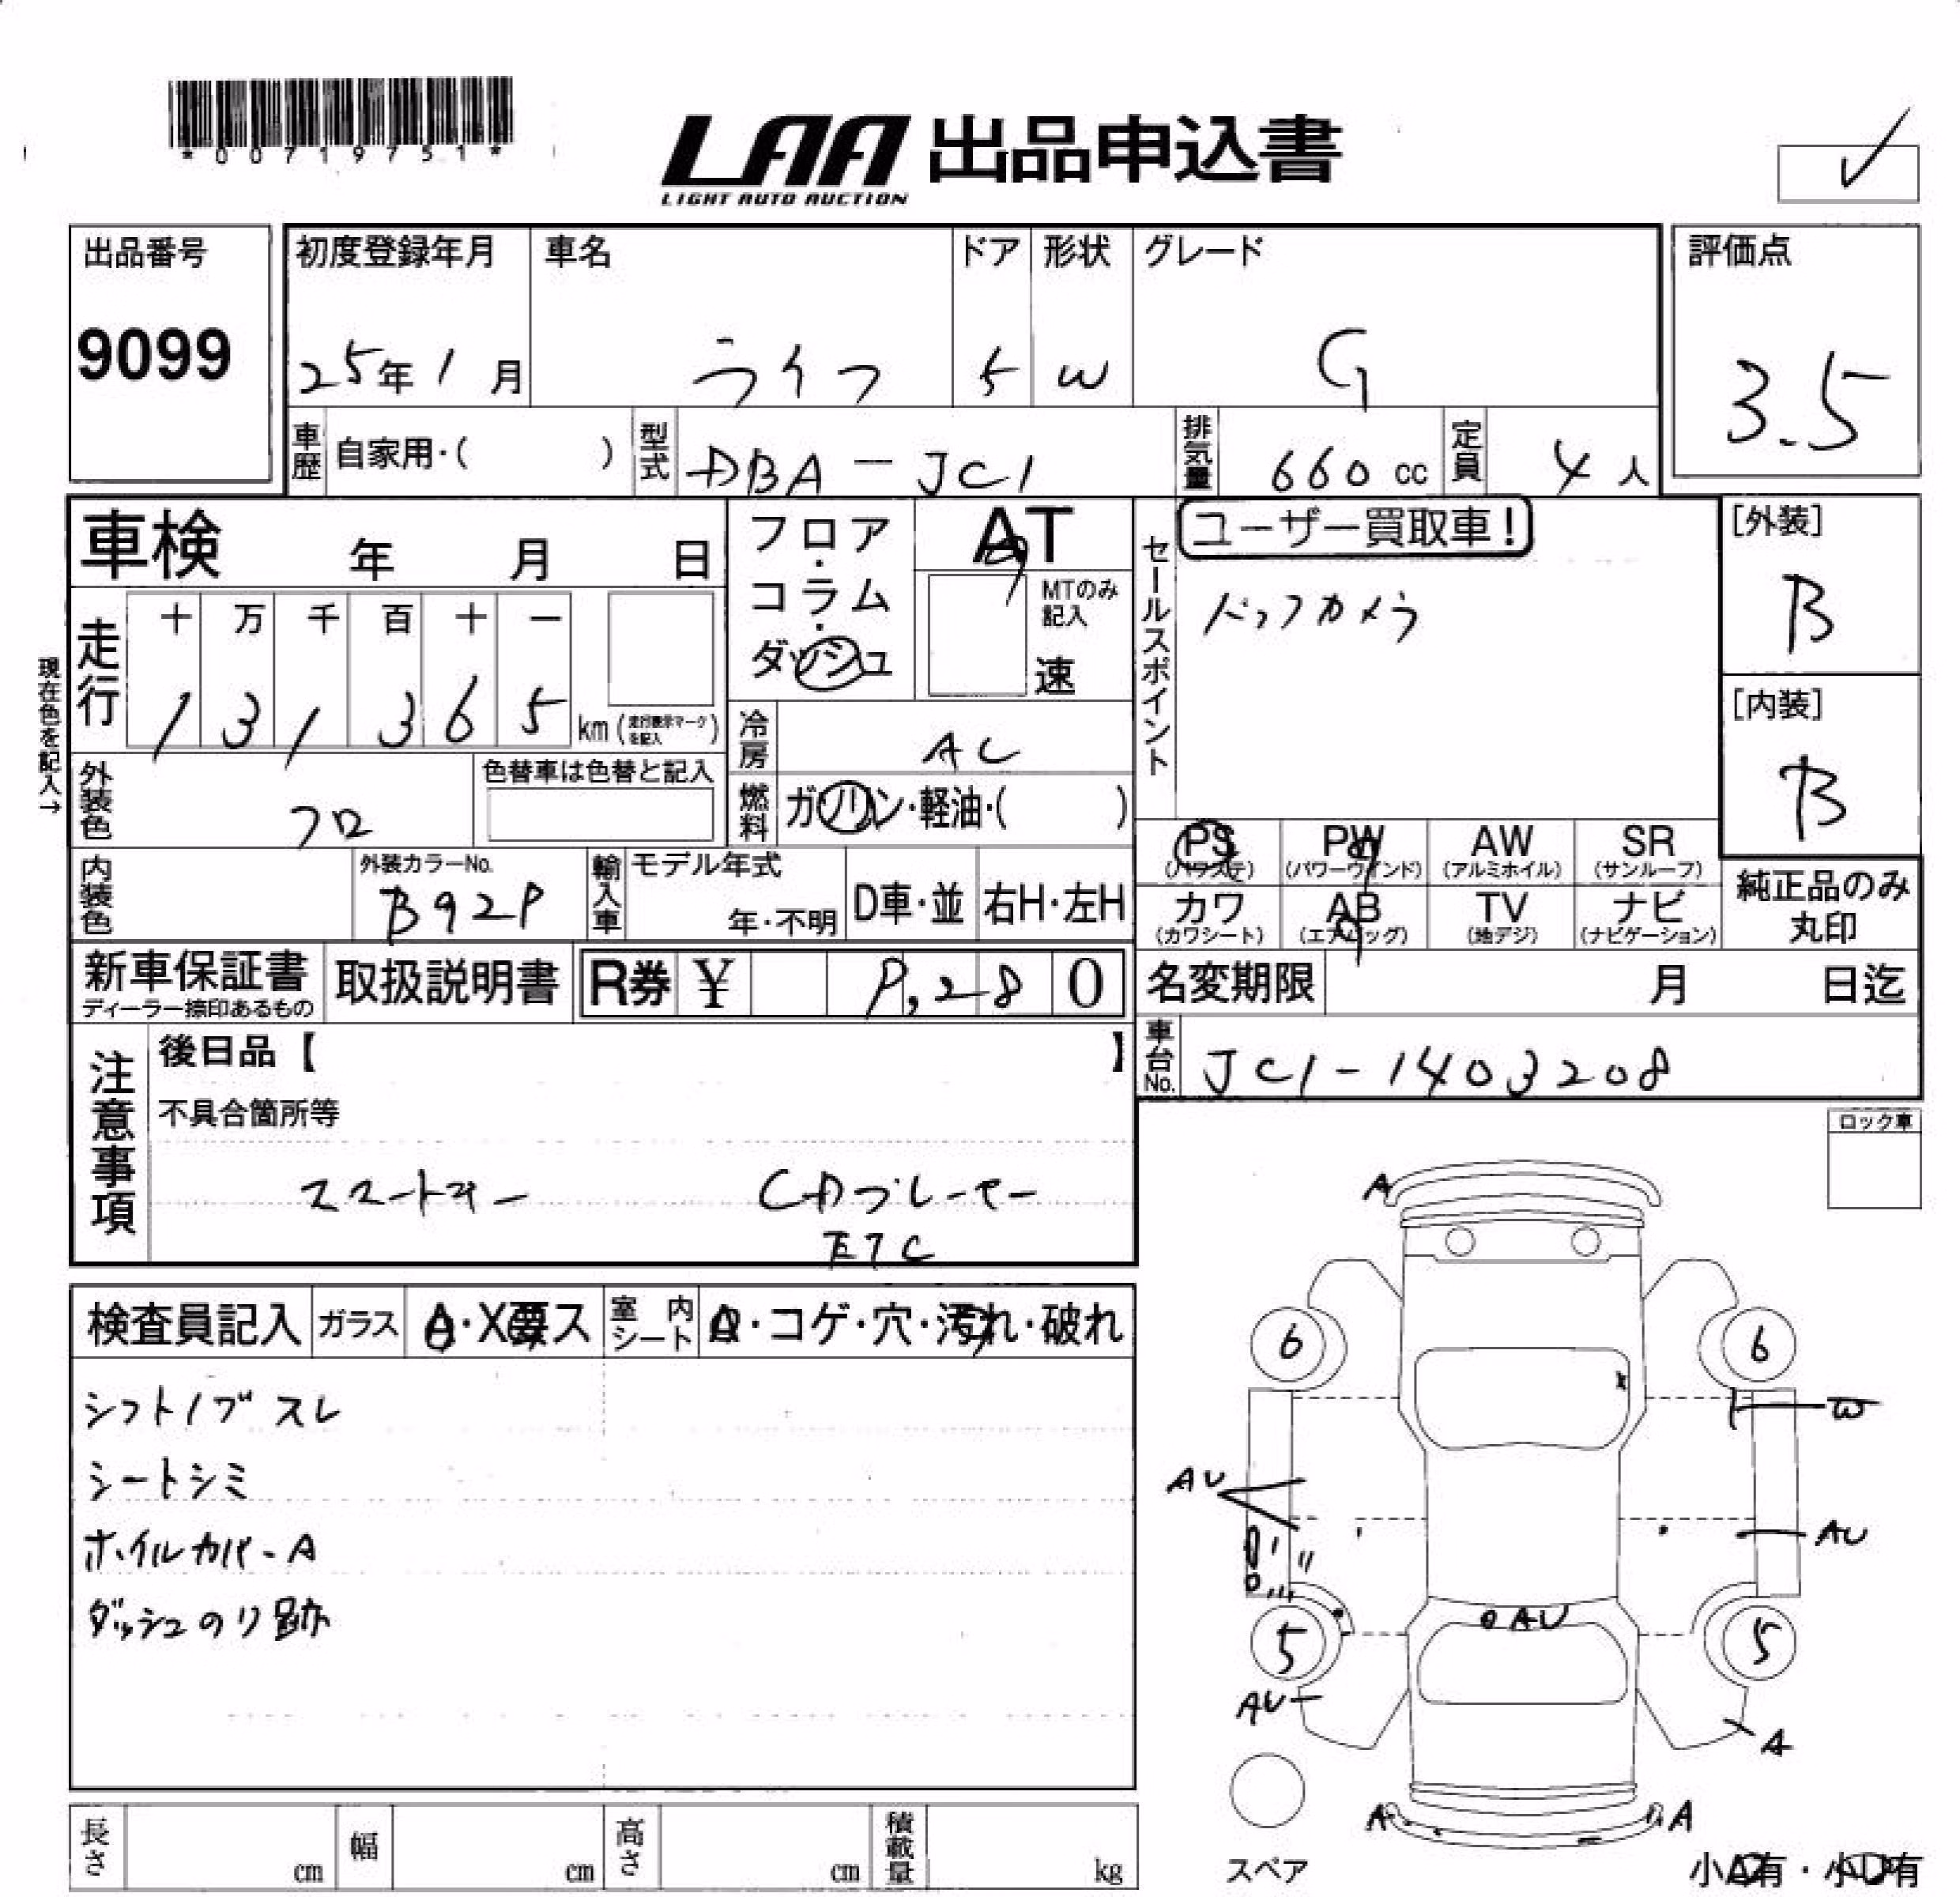 *00719751*
LAA 出品申込書
LIGHT AUTO AUCTION
出品番号
9099
初度登録年月
25年1月
車名
ライフ
ドア
5
形状
W
グレード
G
評価点
3.5
車歴 自家用・( )
型式 DBA-JC1
排気量 660 cc
定員 4人
車検 年 月 日
フロア・コラム・ダッシュ
AT
MTのみ記入
速
セールスポイント
ユーザー買取車!
バックカメラ
[外装]
B
[内装]
B
現在色を記入→
走行
十 万 千 百 十 一
1 3 1 3 6 5 km (走行表示マークを記入)
冷房 AC
燃料 ガソリン・軽油・( )
外装色 クロ
色替車は色替と記入
内装色
外装カラーNo.
B92P
輸入車
モデル年式
年・不明
D車・並
右H・左H
PS (パワステ)
PW (パワーウインド)
AW (アルミホイル)
SR (サンルーフ)
カワ (カワシート)
AB (エアバッグ)
TV (地デジ)
ナビ (ナビゲーション)
純正品のみ
丸印
新車保証書
ディーラー捺印あるもの
取扱説明書
R券 ¥ 280
名変期限 月 日迄
車台No. JC1-1403208
注意事項
後日品【 】
不具合箇所等
スマートキー CDプレーヤー
ETC
ロック車
検査員記入
ガラス A・X要ス
室内シート ・コゲ・穴・汚れ・破れ
シフトノブ スレ
シートシミ
ホイルカバーA
ダッシュのり跡
A
6 6
x
W
AU
AU
AU
5 5
AU
A
A A
スペア
長さ cm
幅 cm
高さ cm
積載量 kg
小A有・小U有